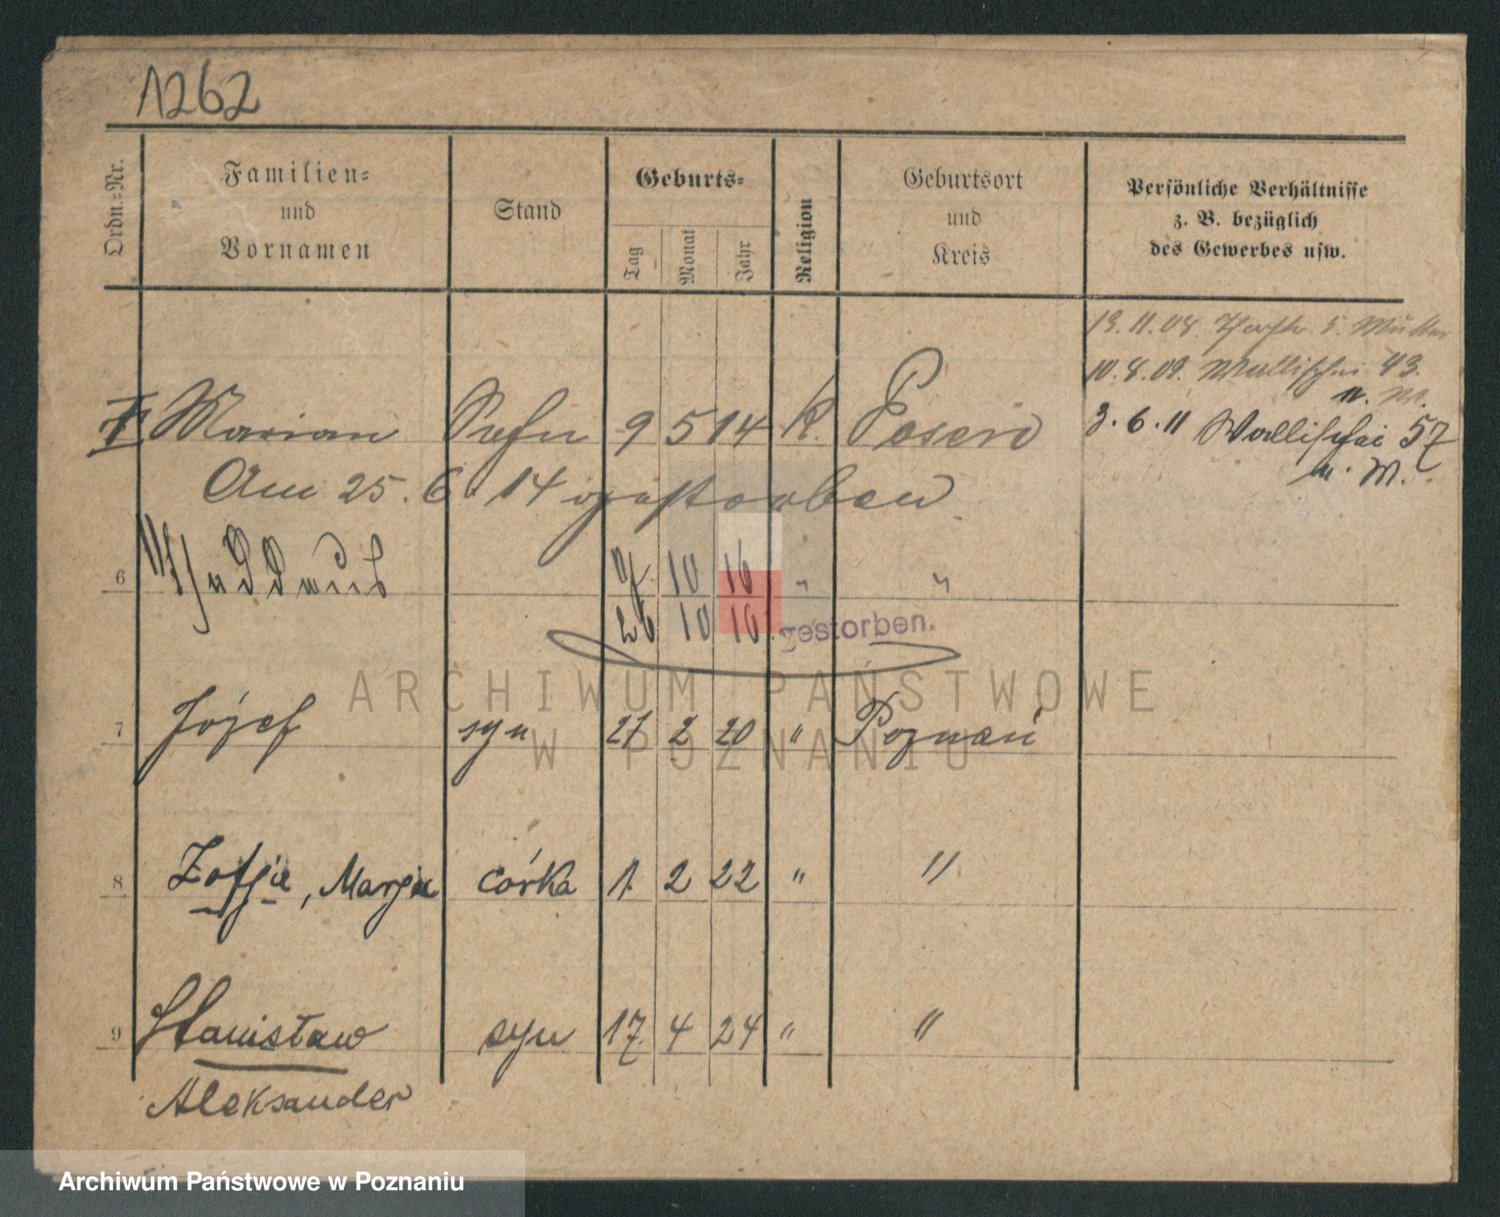 1262
Ordn.=Nr.
Familien=
und
Vornamen
Stand
Geburts=
Tag
Monat
Jahr
Religion
Geburtsort
und
Kreis
Persönliche Verhältnisse
z. B. bezüglich
des Gewerbes usw.
13. 11. 08. 5. Mutter
10. 8. 09. Wallischei 43.
n. M.
3. 6. 11 Wallischei 57
n. M.
Marian Sohn 9 5 14 K. Posen
Am 25. 6. 14 gestorben.
6 10 16 " "
26 10 16 gestorben.
ARCHIWUM PAŃSTWOWE
W POZNANIU
7 Józef syn 21 2 20 " Poznań
8 Zofja, Marja córka 1. 2 22 " "
9 Stanisław syn 17. 4 24 " "
Aleksander
Archiwum Państwowe w Poznaniu